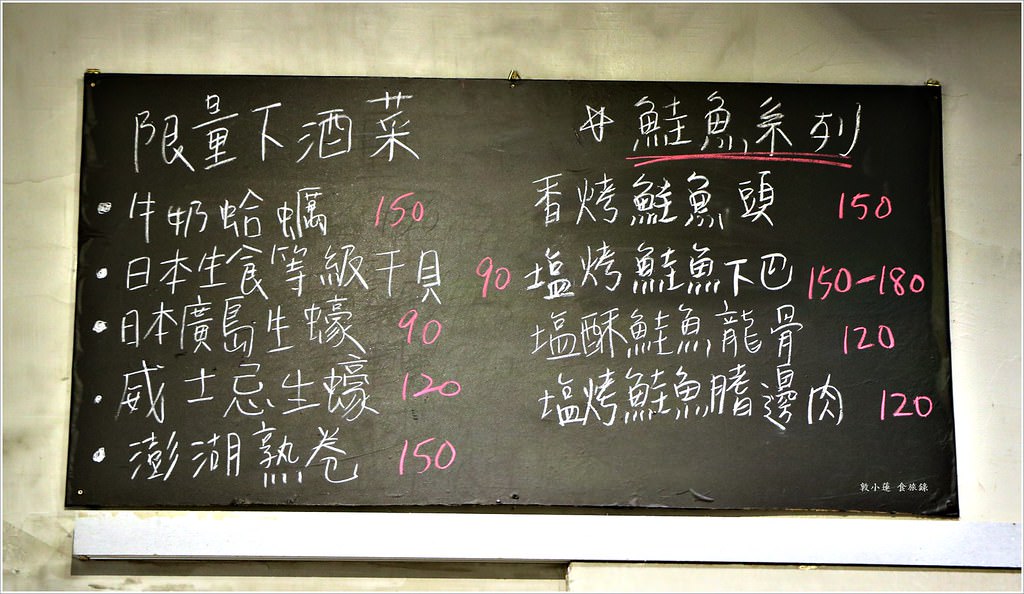 限量下酒菜
牛奶蛤蠣 150
日本生食等級干貝 90
日本廣島生蠔 90
威士忌生蠔 120
澎湖熟卷 150
# 鮭魚系列
香烤鮭魚頭 150
塩烤鮭魚下巴 150-180
塩酥鮭魚龍骨 120
塩烤鮭魚鰭邊肉 120
敦小蓮 食旅錄